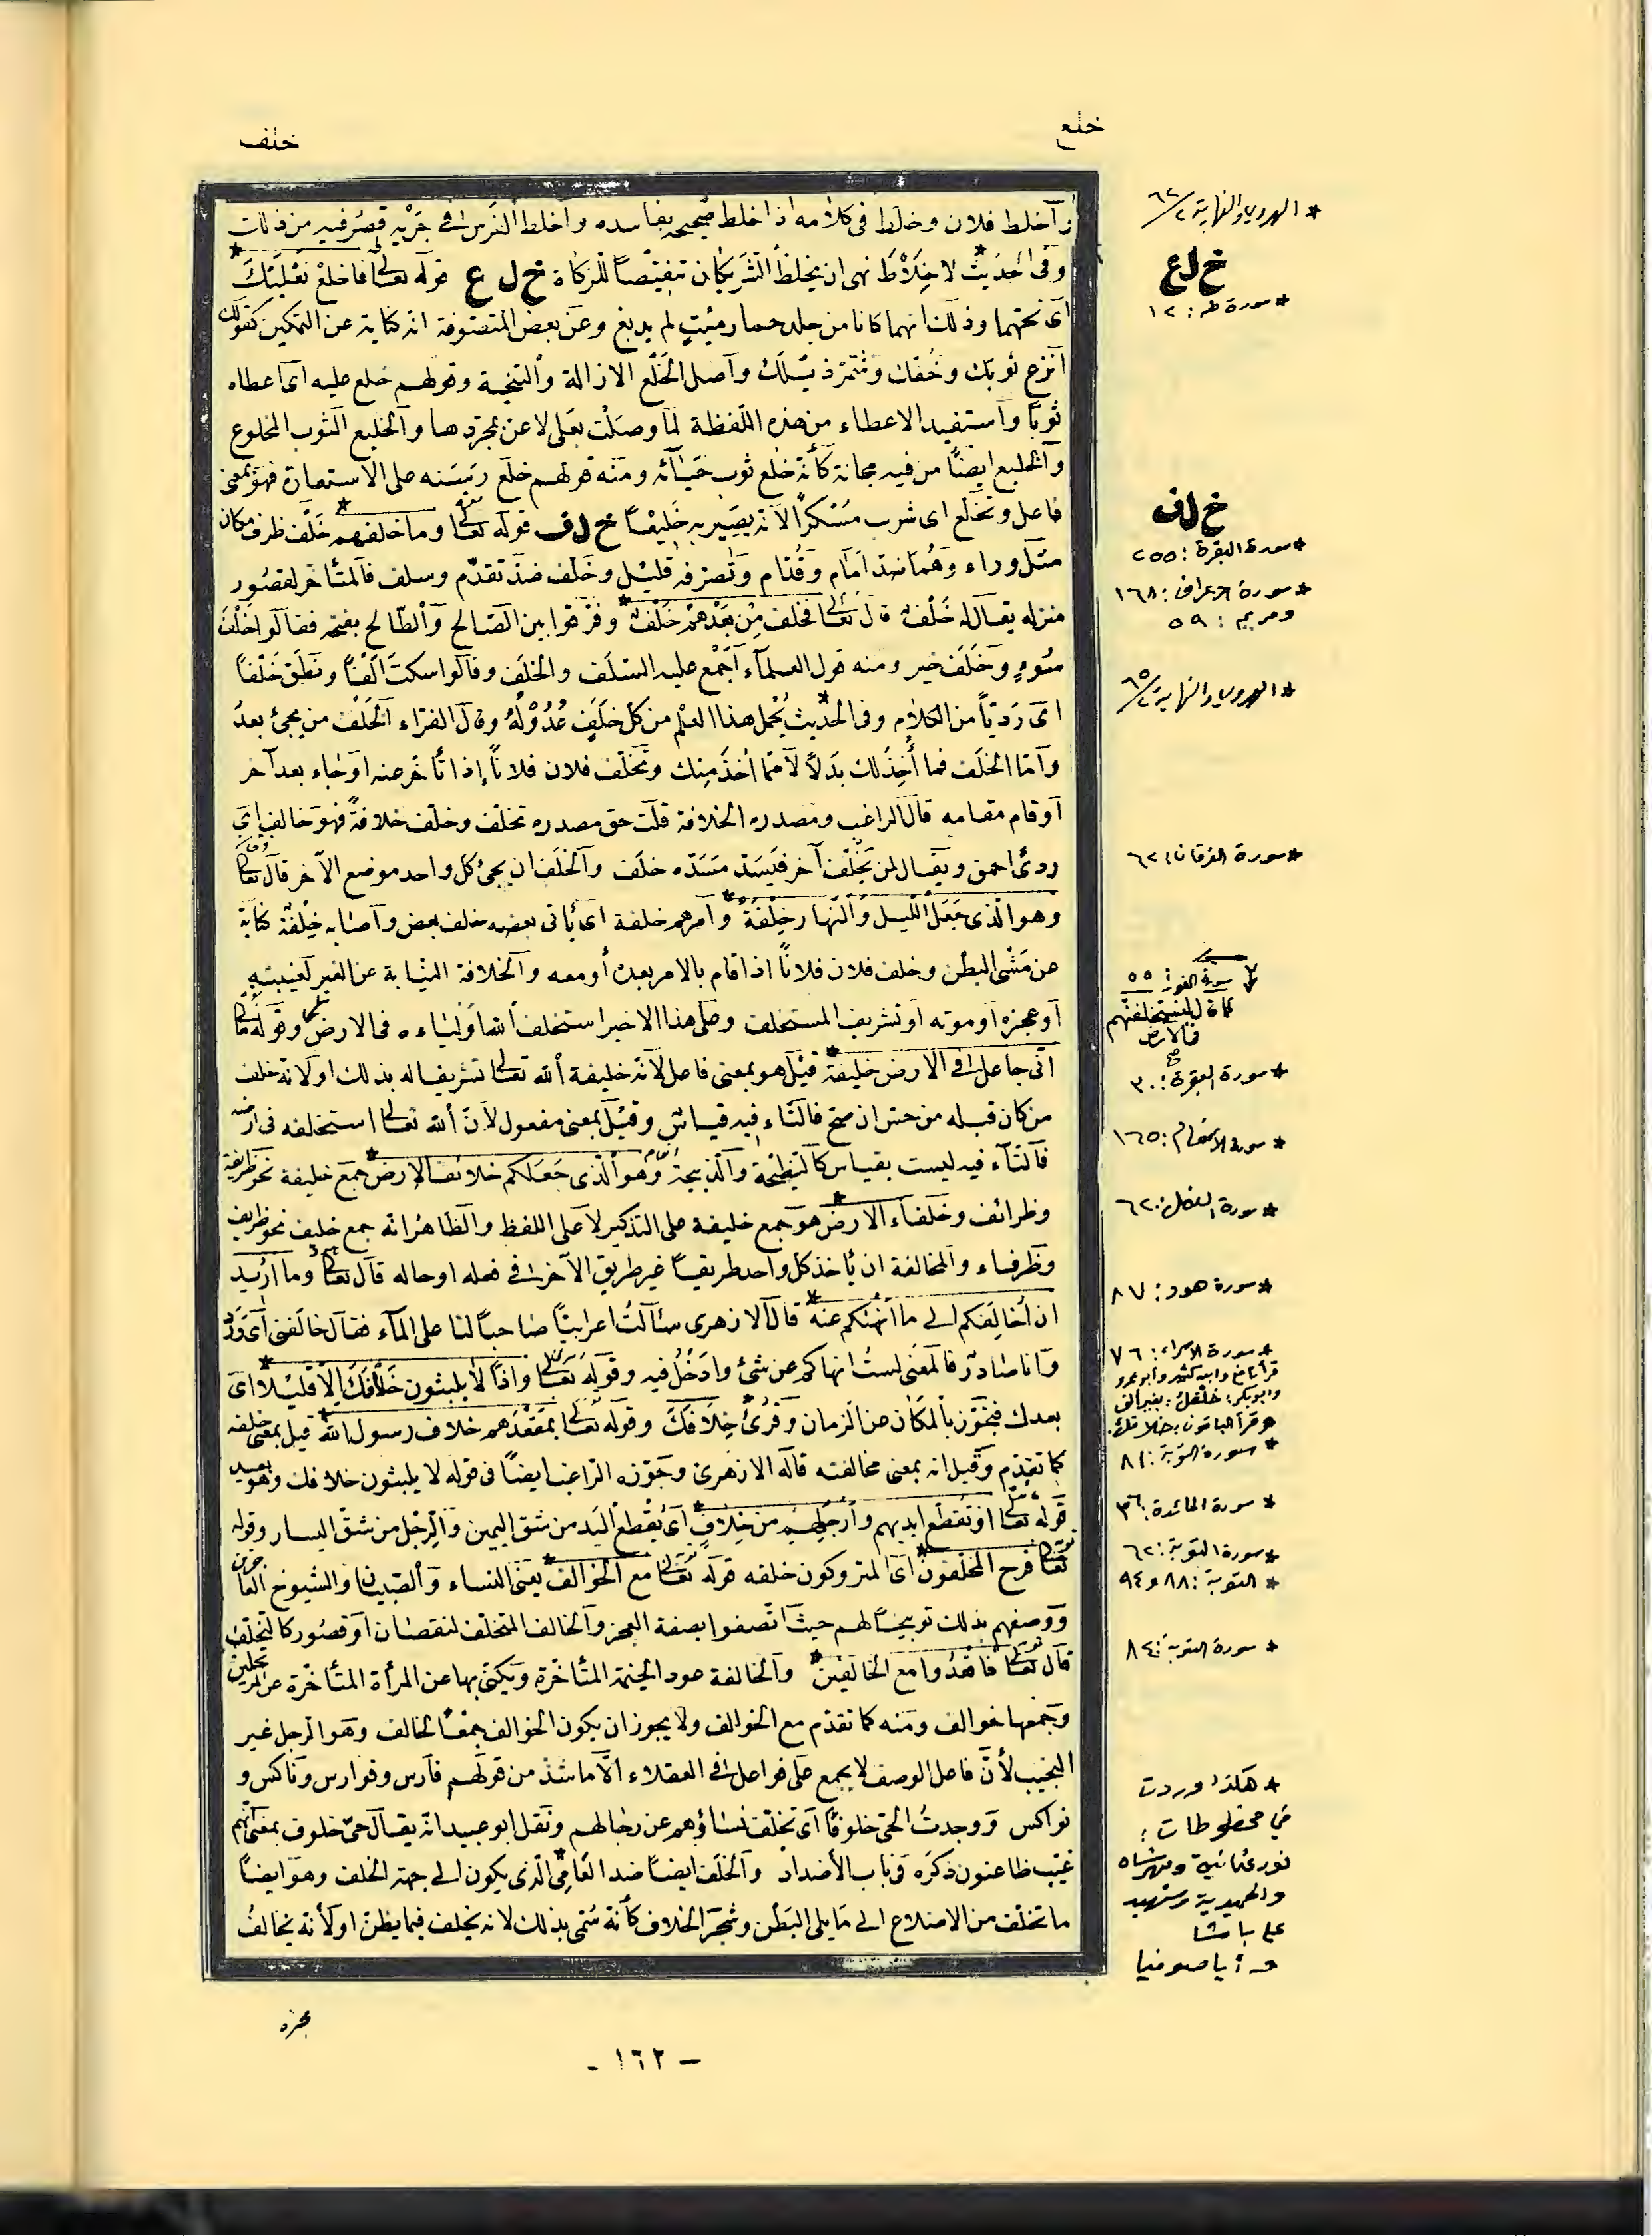 خلع
خلف
وأخلط فلان وخلط فى كلامه اذا خلط صحيحه بفاسده واخلط الفرس فى جريه قصر فيه من ذلك
وفى الحديث لا خلاط نهى ان يخلط الشريكان تنقيصاً للزكاة خ ل ع قوله تعالى فاخلع نعليك
اى نحهما وذلك انهما كانا من جلد حمار ميت لم يدبغ وعن بعض المتصوفة انه كناية عن التمكين كقولك
انزع ثوبك وخفك وشمر ذيلك واصل الخلع الازالة والتنحية وقولهم خلع عليه اى اعطاه
ثوباً واستفيد الاعطاء من هذه اللفظة لما وصلت بعلى لا عن مجردها والخليع الثوب المخلوع
والخليع ايضاً من فيه مجانة كأنه خلع ثوب حيائه ومنه قولهم خلع رسنه على الاستعارة فهو بمعنى
فاعل وتخلع اى شرب مسكراً لأنه يصير به خليعاً خ ل ف قوله تعالى وما خلفهم خلف ظرف مكان
مثل وراء وهما ضد امام وقدام وتصرفه قليل وخلف ضد تقدم وسلف فالمتأخر لقصور
منزله يقال له خلف قال تعالى فخلف من بعدهم خلف وفرقوا بين الصالح والطالح بفتحه فقالوا خلف
سوء وخلف خير ومنه قول العلماء اجمع عليه السلف والخلف وقالوا سكت الفاً ونطق خلفاً
اى رديّاً من الكلام وفى الحديث يحمل هذا العلم من كل خلف عدوله وقال الفراء الخلف من يجئ بعد
واما الخلف فما أخذ لك بدلاً مما اخذ منك وتخلف فلان فلاناً إذا تأخر عنه او جاء بعد آخر
أو قام مقامه قال الراغب ومصدره الخلافة قلت حق مصدره تخلف وخلف خلافة فهو خالف اى
ردئ احمق ويقال لمن تخلف آخر فيسد مسده خلف والخلف ان يجئ كل واحد موضع الآخر قال تعالى
وهو الذى جعل الليل والنهار خلفة وامرهم خلفة اى يأتى بعضه خلف بعض واصابه خلفة كناية
عن مشى البطن وخلف فلان فلاناً اذا قام بالامر بعده أو معه والخلافة النيابة عن الغير لغيبته
او عجزه او موته او تشريف المستخلف وعلى هذا الاخير استخلف الله أولياءه فى الارض وقوله تعالى
انى جاعل فى الارض خليفة قيل هو بمعنى فاعل لأنه خليفة الله تعالى تشريفا له بذلك اولانه خلف
من كان قبله من جن ان صح فالتاء فيه قياس وقيل بمعنى مفعول لأن الله تعالى استخلفه فى ارضه
فالتاء فيه ليست بقياس كالنطيحة والذبيحة وهو الذى جعلكم خلائف الارض جمع خليفة نحو ظريفة
وظرائف وخلفاء الارض هو جمع خليفة على التذكير لا على اللفظ والظاهر انه جمع خليف نحو ظريف
وظرفاء والمخالفة ان يأخذ كل واحد طريقاً غير طريق الآخر فى فعله او حاله قال تعالى وما اريد
ان اخالفكم الى ما انهاكم عنه قال الازهرى سألت اعرابيّاً صاحباً لنا على الماء فقال خالفنى اى ورد
وانا صادر فالمعنى لست انهاكم عن شئ وادخل فيه وقوله تعالى واذاً لا يلبثون خلافك الا قليلاً اى
بعدك فتجوز بالمكان عن الزمان وقرئ خلافك وقوله تعالى بمقعدهم خلاف رسول الله قيل بمعنى خلفه
كما تقدم وقيل انه بمعنى مخالفته قاله الازهرى وجوزه الراغب ايضاً فى قوله لا يلبثون خلافك وهو بعيد
قوله تعالى او تقطع ايديهم وارجلهم من خلاف اى يقطع اليد من شق اليمين والرجل من شق اليسار وقوله
تعالى فرح المخلفون اى المتروكون خلفه قوله تعالى مع الخوالف يعنى النساء والصبيان والشيوخ العاجزين
ووصفهم بذلك توبيخاً لهم حيث اتصفوا بصفة العجز والخالف المتخلف لنقصان او قصور كالمتخلف
قال تعالى فاقعدوا مع الخالفين والخالفة عود الخيمة المتأخرة ويكنى بها عن المرأة المتأخرة عن المرتحلين
وجمعها خوالف ومنه كما تقدم مع الخوالف ولا يجوز ان يكون الخوالف جمعاً لخالف وهو الرجل غير
النجيب لأن فاعل الوصف لا يجمع على فواعل فى العقلاء الا ما شذ من قولهم فارس وفوارس وناكس و
نواكس ووجدت الحى خلوفاً اى تخلفت نساؤهم عن رجالهم ونقل ابو عبيد انه يقال حى خلوف بمعنى انهم
غيّب ظاعنون ذكره فى باب الأضداد والخلف ايضاً ضد الفأس الذى يكون الى جهة الخلف وهو ايضاً
ما تخلف من الاضلاع الى ما يلى البطن وشجر الخلاف كأنه سمى بذلك لانه يخلف فيما يظن او لأنه يخالف
مخبره
* الهروى والنهاية ٢/٦٢
خ ل ع
* سورة طه: ١٢
خ ل ف
* سورة البقرة: ٢٥٥
* سورة الاعراف: ١٦٨
ومريم: ٥٩
* الهروى والنهاية ٢/٦٥
* سورة الفرقان: ٦٢
سورة النور: ٥٥
كما قال ليستخلفنهم
فى الارض
صح
* سورة البقرة: ٣٠
* سورة الانعام: ١٦٥
* سورة النمل: ٦٢
* سورة هود: ٨٧
* سورة الاسراء: ٧٦
قرأ نافع وابن كثير وأبو عمرو
وابو بكر: خلفك: بغير الف
وقرأ الباقون: خلافك.
* سورة التوبة: ٨١
* سورة المائدة: ٣٦
* سورة التوبة: ٦٢
* التوبة: ٨٨ و ٩٤
* سورة التوبة: ٨٤
* هكذا وردت
في مخطوطات:
نور عثمانية ومهرشاه
والحميدية وشهيد
علي باشا
وأيا صوفيا
- ١٦٢ -